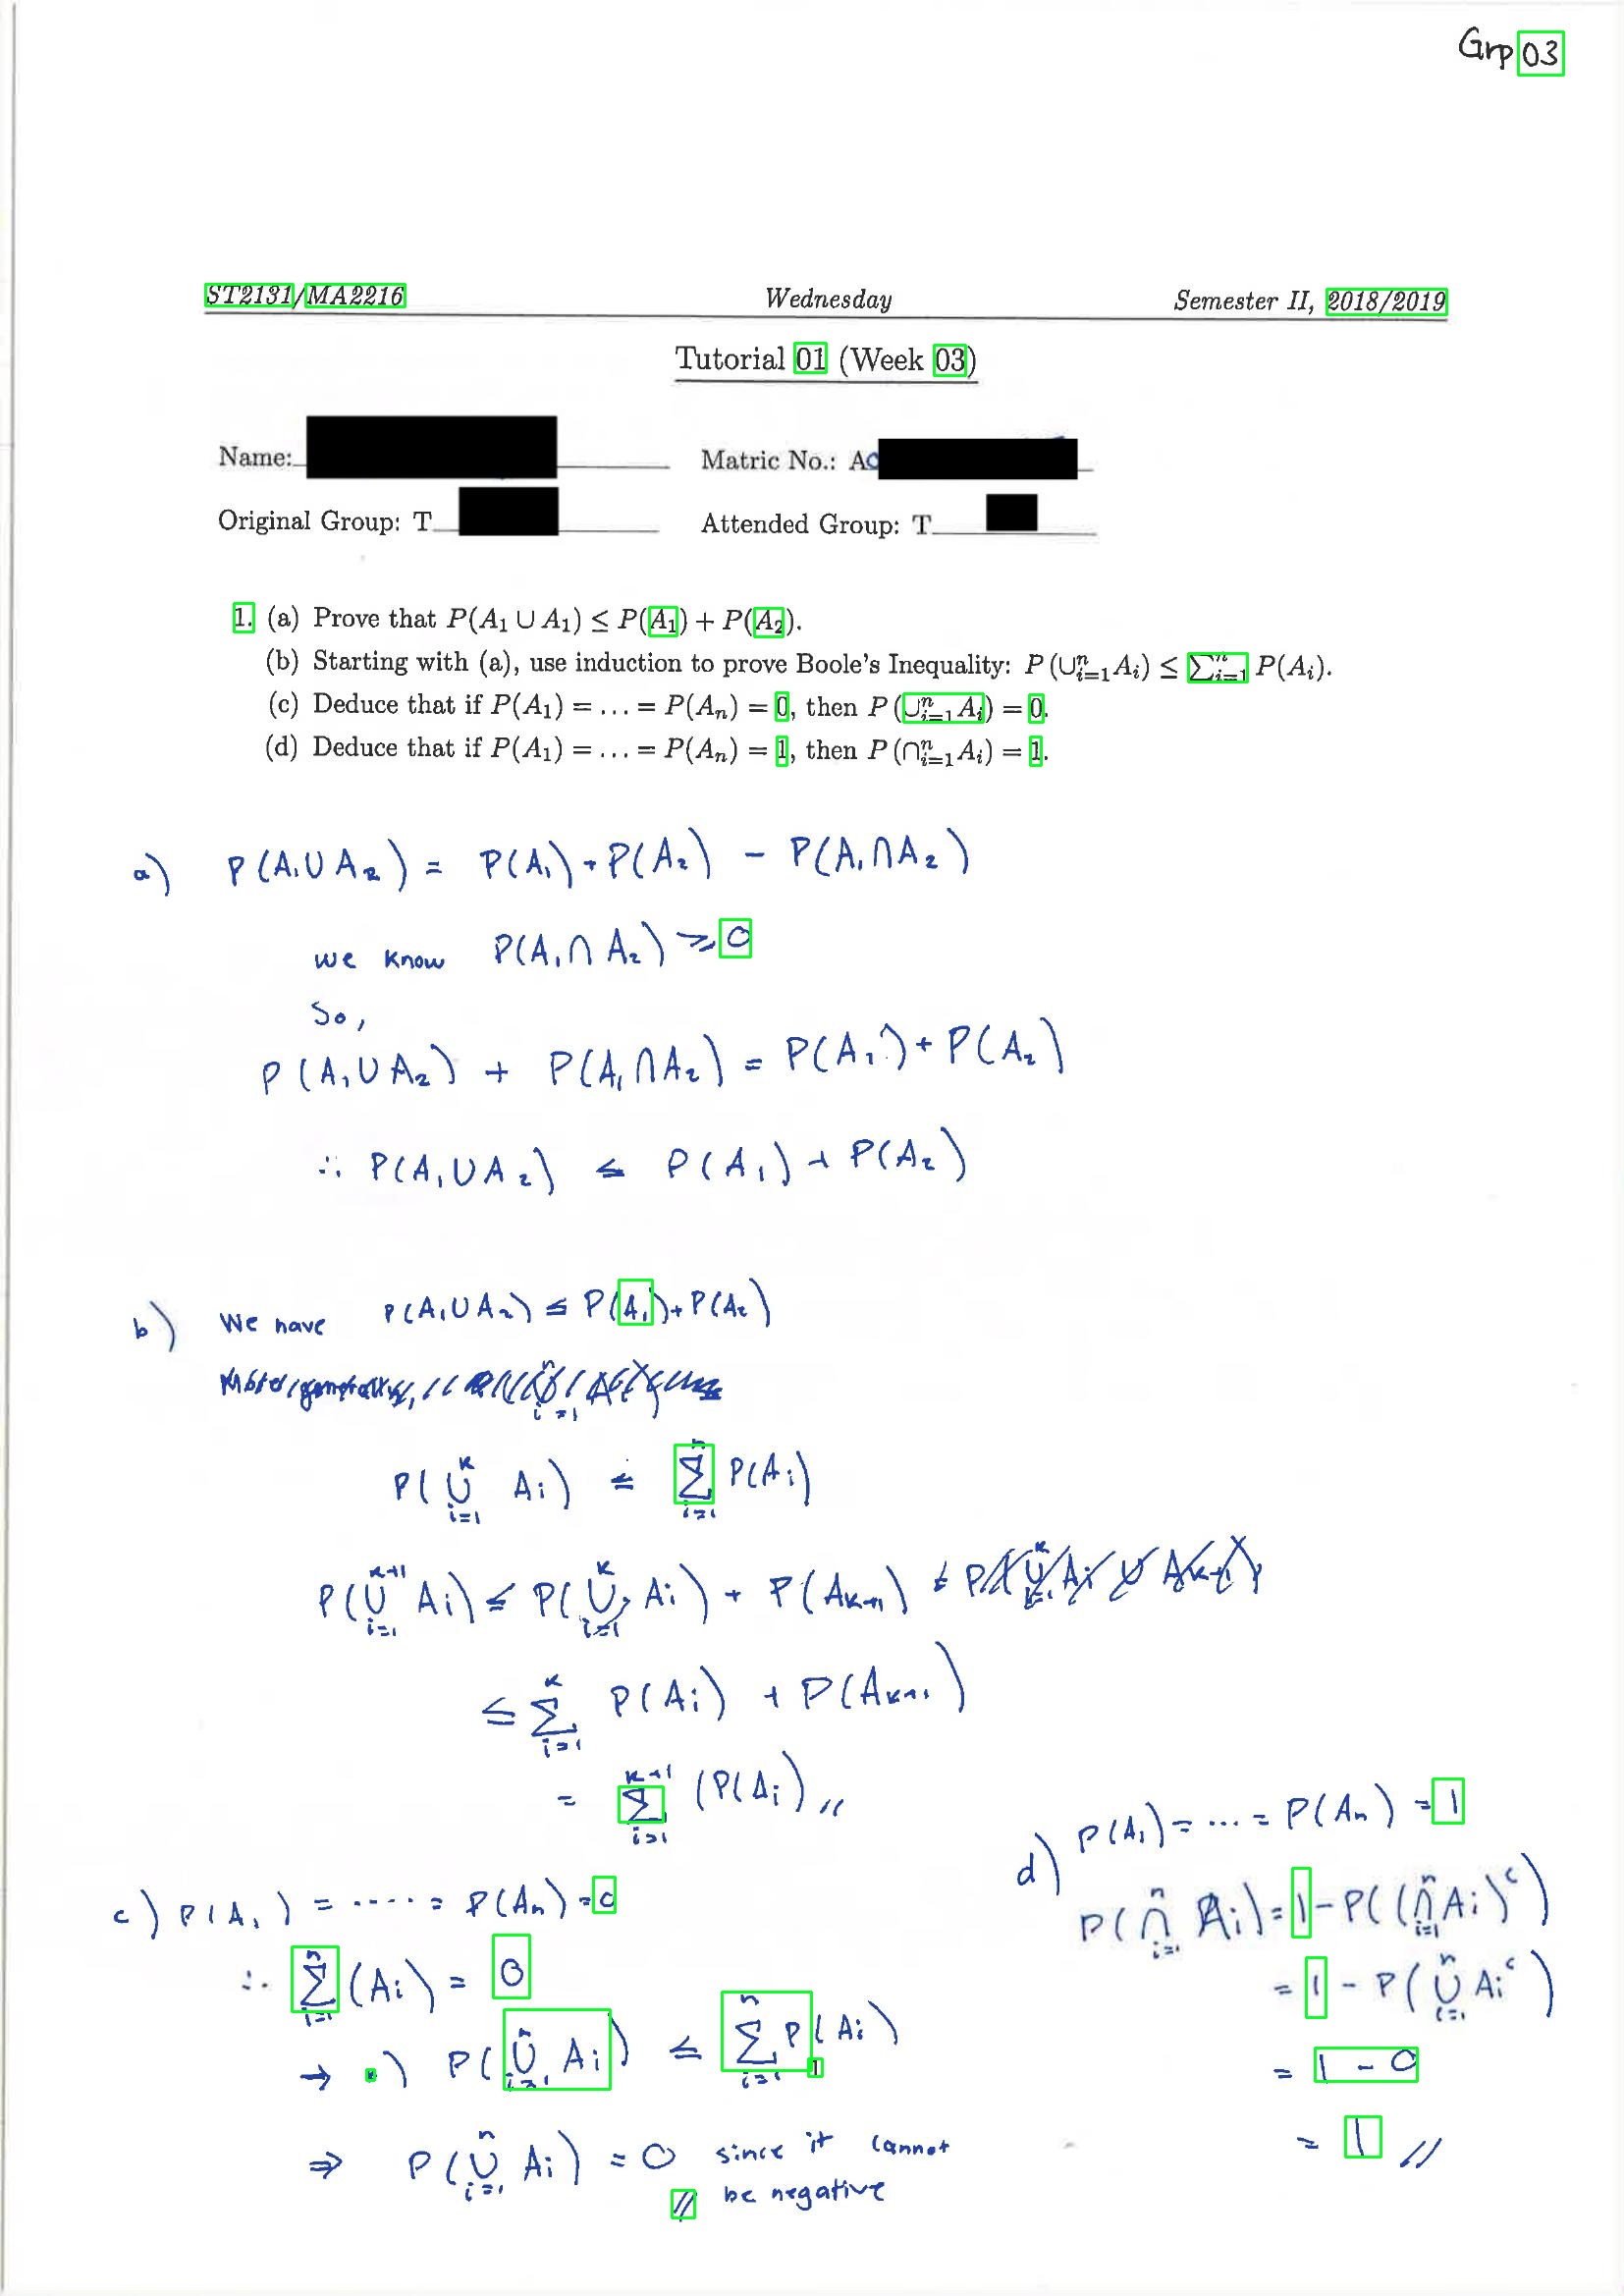 Grp 03
ST2131/MA2216 Wednesday Semester II, 2018/2019
Tutorial 01 (Week 03)
Name: Matric No.: A0
Original Group: T Attended Group: T
1. (a) Prove that P(A₁ ∪ A₁) ≤ P(A₁) + P(A₂).
(b) Starting with (a), use induction to prove Boole's Inequality: P(∪ⁿᵢ₌₁Aᵢ) ≤ ∑ⁿᵢ₌₁ P(Aᵢ).
(c) Deduce that if P(A₁) = … = P(Aₙ) = 0, then P(∪ⁿᵢ₌₁Aᵢ) = 0.
(d) Deduce that if P(A₁) = … = P(Aₙ) = 1, then P(∩ⁿᵢ₌₁Aᵢ) = 1.
a) P(A₁∪A₂) = P(A₁) + P(A₂) − P(A₁∩A₂)
we know P(A₁∩A₂) ≥ 0
So,
P(A₁∪A₂) + P(A₁∩A₂) = P(A₁) + P(A₂)
∴ P(A₁∪A₂) ≤ P(A₁) + P(A₂)
b) We have P(A₁∪A₂) ≤ P(A₁) + P(A₂)
P(∪ᵏᵢ₌₁ Aᵢ) ≤ ∑ⁿᵢ₌₁ P(Aᵢ)
P(∪ᵏ⁺¹ᵢ₌₁ Aᵢ) ≤ P(∪ᵏᵢ₌₁ Aᵢ) + P(Aₖ₊₁)
≤ ∑ᵏᵢ₌₁ P(Aᵢ) + P(Aₖ₊₁)
= ∑ᵏ⁺¹ᵢ₌₁ (P(Aᵢ) //
c) P(A₁) = ..... = P(Aₙ) = 0
∴ ∑ⁿᵢ₌₁ (Aᵢ) = 0
→ ) P(∪ⁿᵢ₌₁ Aᵢ) ≤ ∑ⁿᵢ₌₁ P(Aᵢ)
⇒ P(∪ⁿᵢ₌₁ Aᵢ) = 0 since it cannot
// be negative
d) P(A₁) = ... = P(Aₙ) = 1
P(∩ⁿᵢ₌₁ Aᵢ) = 1 − P((∩ⁿᵢ₌₁ Aᵢ)ᶜ)
= 1 − P(∪ⁿᵢ₌₁ Aᵢᶜ)
= 1 − 0
= 1 //